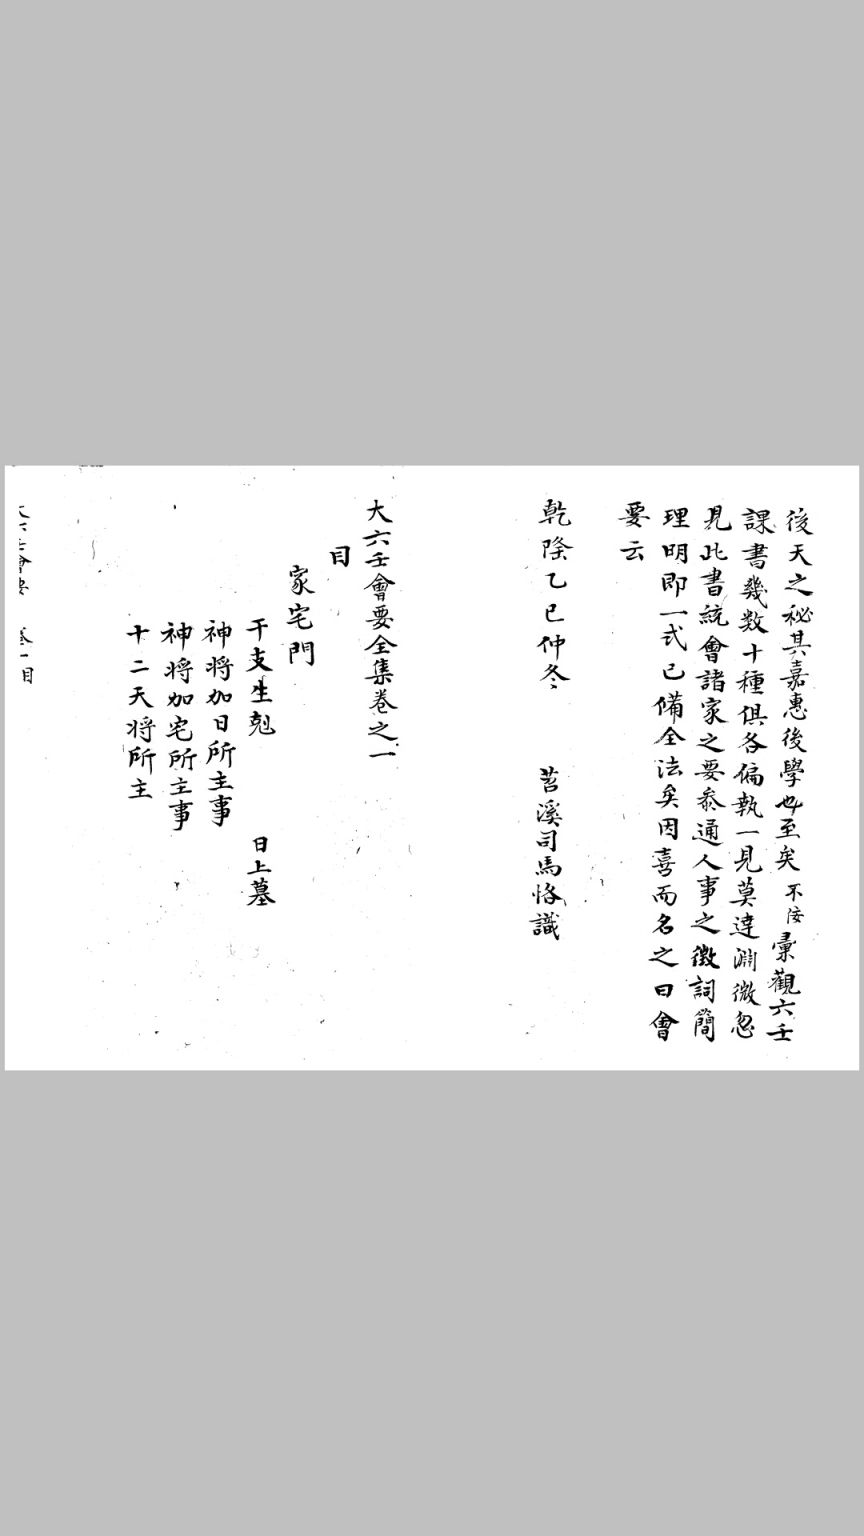 後天之秘其嘉惠後學也至矣不佞彙觀六壬
課書幾数十種俱各偏執一見莫達淵微忽
見此書統會諸家之要叅通人事之徵詞簡
理明即一式已備全法矣因喜而名之曰會
要云
乾隆乙巳仲冬 苕溪司馬恪識
大六壬會要全集卷之一
目
家宅門
干支生剋 日上墓
神将加日所主事
神将加宅所主事
十二天将所主
大六壬會要 卷一目